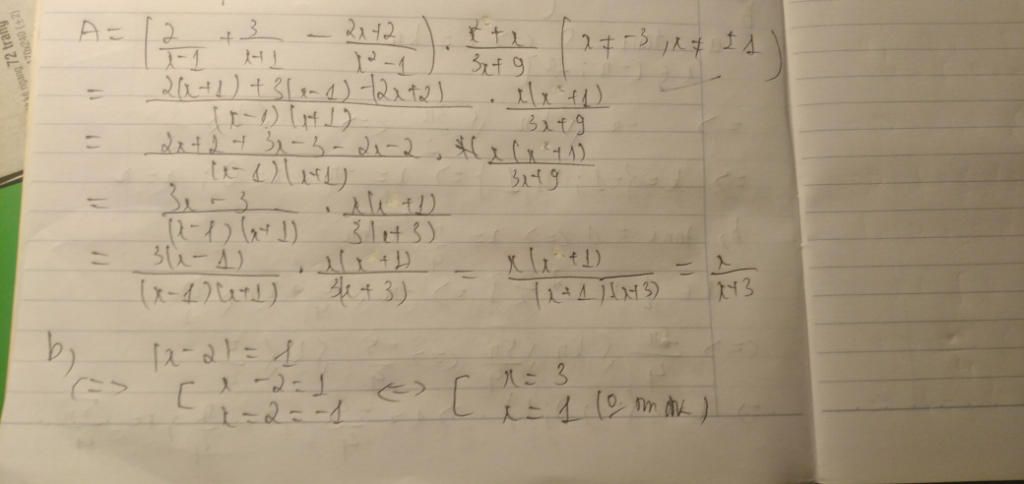 72 trang
A = ( 2/(x-1) + 3/(x+1) - (2x+2)/(x²-1) ) . (x²+x)/(3x+9) ( x ≠ -3, x ≠ ±1 )
= (2(x+1) + 3(x-1) - (2x+2))/((x-1)(x+1)) . x(x²+1)/(3x+9)
= (2x+2 + 3x-3 - 2x-2)/((x-1)(x+1)) . x(x²+1)/(3x+9)
= (3x-3)/((x-1)(x+1)) . x(x+1)/(3(x+3))
= 3(x-1)/((x-1)(x+1)) . x(x+1)/(3(x+3)) = x(x+1)/((x+1)(x+3)) = x/(x+3)
b, |x-2| = 1
<=> [ x-2=1 <=> [ x = 3
x=2=-1 x = 1 (o tm đk)